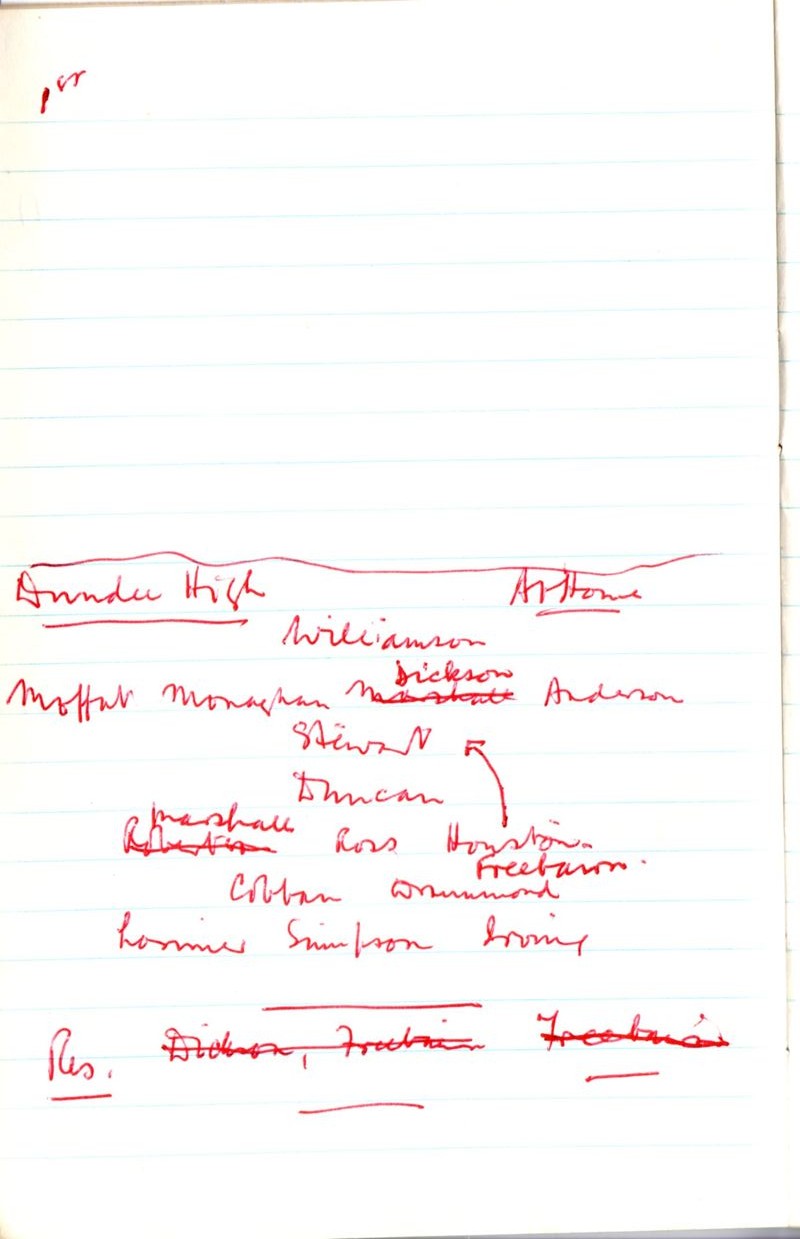 1st
Dundee High At Home
Williamson
Dickson
Moffat Monaghan Marshall Anderson
Stewart
Duncan
Marshall
Robertson Ross Houston.
Freebairn.
Cobban Drummond
Lorimer Simpson Irving
Res. Dickson, Freebairn Freebairn